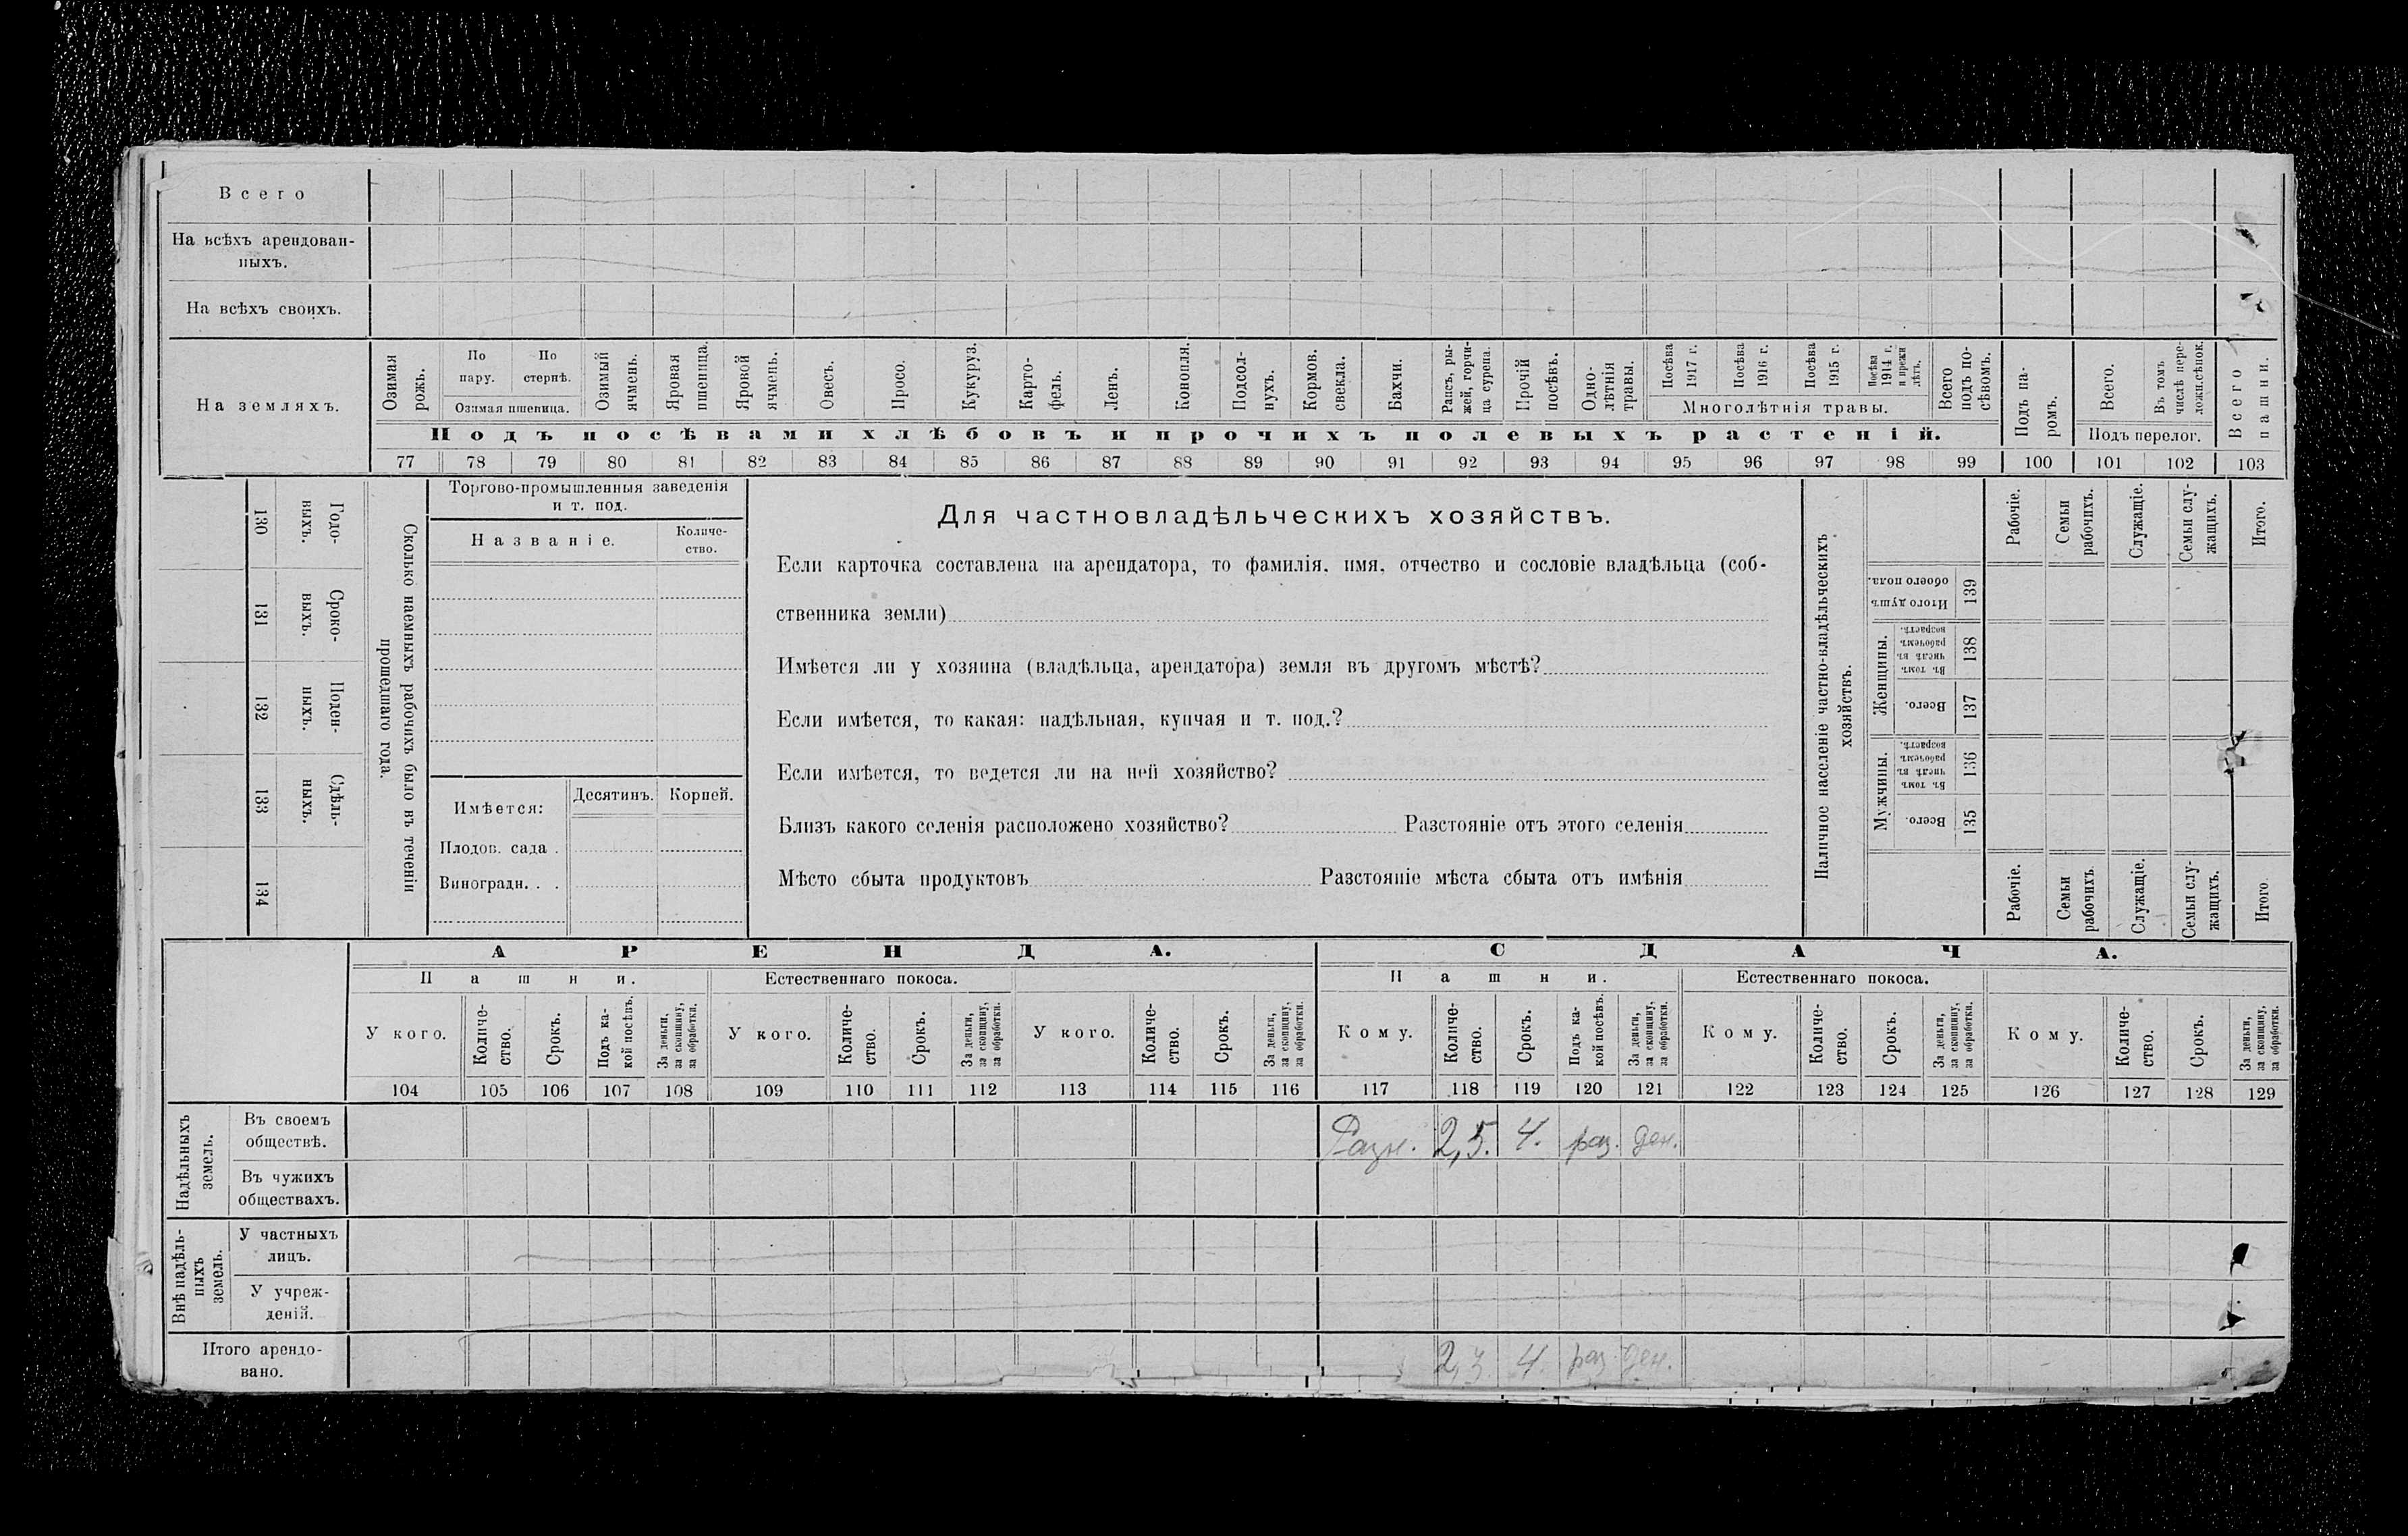 Всего
На всѣхъ арендован-
ныхъ.
На всѣхъ своихъ.
На земляхъ.
Озимая рожь.
По пару.
По стернѣ.
Озимая пшеница.
Озимый ячмень.
Яровая пшеница.
Яровой ячмень.
Овесъ.
Просо.
Кукуруз.
Карто-
фель.
Ленъ.
Конопля.
Подсол-
нухъ.
Кормов. свекла.
Бахчи.
Рапсъ, ры-
жей, горчи-
ца сурепа.
Прочій посѣвъ.
Одно-
лѣтнія травы.
Посѣва 1917 г.
Посѣва 1916 г.
Посѣва 1915 г.
Посѣва 1914 г. и прежн лѣтъ.
Многолѣтнія травы.
Всего подъ по-
сѣвомъ.
Подъ посѣвами хлѣбовъ и прочихъ полевыхъ растеній.
Подъ па-
ромъ.
Всего.
Въ томъ числѣ пере-
ложн.сѣнок.
Подъ перелог.
Всего пашни.
77 78 79 80 81 82 83 84 85 86 87 88 89 90 91 92 93 94 95 96 97 98 99 100 101 102 103
130 Годо-
выхъ.
131 Сроко-
выхъ.
132 Поден-
ныхъ.
133 Сдѣль-
ныхъ.
134
Сколько наемныхъ рабочихъ было въ теченіи
прошедшаго года.
Торгово-промышленныя заведенія
и т. под.
Названіе.
Количе-
ство.
Имѣется:
Десятинъ.
Корней.
Плодов. сада .
Виноградн. . .
Для частновладѣльческихъ хозяйствъ.
Если карточка составлена на арендатора, то фамилія, имя, отчество и сословіе владѣльца (соб-
ственника земли)
Имѣется ли у хозяина (владѣльца, арендатора) земля въ другомъ мѣстѣ?
Если имѣется, то какая: надѣльная, купчая и т. под.?
Если имѣется, то ведется ли на ней хозяйство?
Близъ какого селенія расположено хозяйство? Разстояніе отъ этого селенія
Мѣсто сбыта продуктовъ Разстояніе мѣста сбыта отъ имѣнія
Наличное населеніе частно-владѣльческихъ
хозяйствъ.
Рабочіе.
Семьи рабочихъ.
Служащіе.
Семьи слу-
жащихъ.
Итого.
Итого душъ обоего пола.
139
Женщины.
Въ томъ числѣ въ рабочемъ возрастѣ.
138
Всего.
137
Мужчины.
Въ томъ числѣ въ рабочемъ возрастѣ.
136
Всего.
135
Рабочіе.
Семьи рабочихъ.
Служащіе.
Семьи слу-
жащихъ.
Итого
АРЕНДА.
СДАЧА.
Пашни.
Естественнаго покоса.
Пашни.
Естественнаго покоса.
У кого.
Количе-
ство.
Срокъ.
Подъ ка-
кой посѣвъ.
За деньги, за скопщину, за обработки.
У кого.
Количе-
ство.
Срокъ.
За деньги, за скопщину, за обработки.
У кого.
Количе-
ство.
Срокъ.
За деньги, за скопщину, за обработки.
Кому.
Количе-
ство.
Срокъ.
Подъ ка-
кой посѣвъ.
За деньги, за скопщину, за обработки.
Кому.
Количе-
ство.
Срокъ.
За деньги, за скопщину, за обработки.
Кому.
Количе-
ство.
Срокъ.
За деньги, за скопщину, за обработки.
104 105 106 107 108 109 110 111 112 113 114 115 116 117 118 119 120 121 122 123 124 125 126 127 128 129
Надѣльныхъ
земель.
Въ своемъ
обществѣ.
Разн. 2,5. 4. раз. ден.
Въ чужихъ
обществахъ.
Внѣ надѣль-
ныхъ
земель.
У частныхъ
лицъ.
У учреж-
деній.
Итого арендо-
вано.
4. раз. ден.